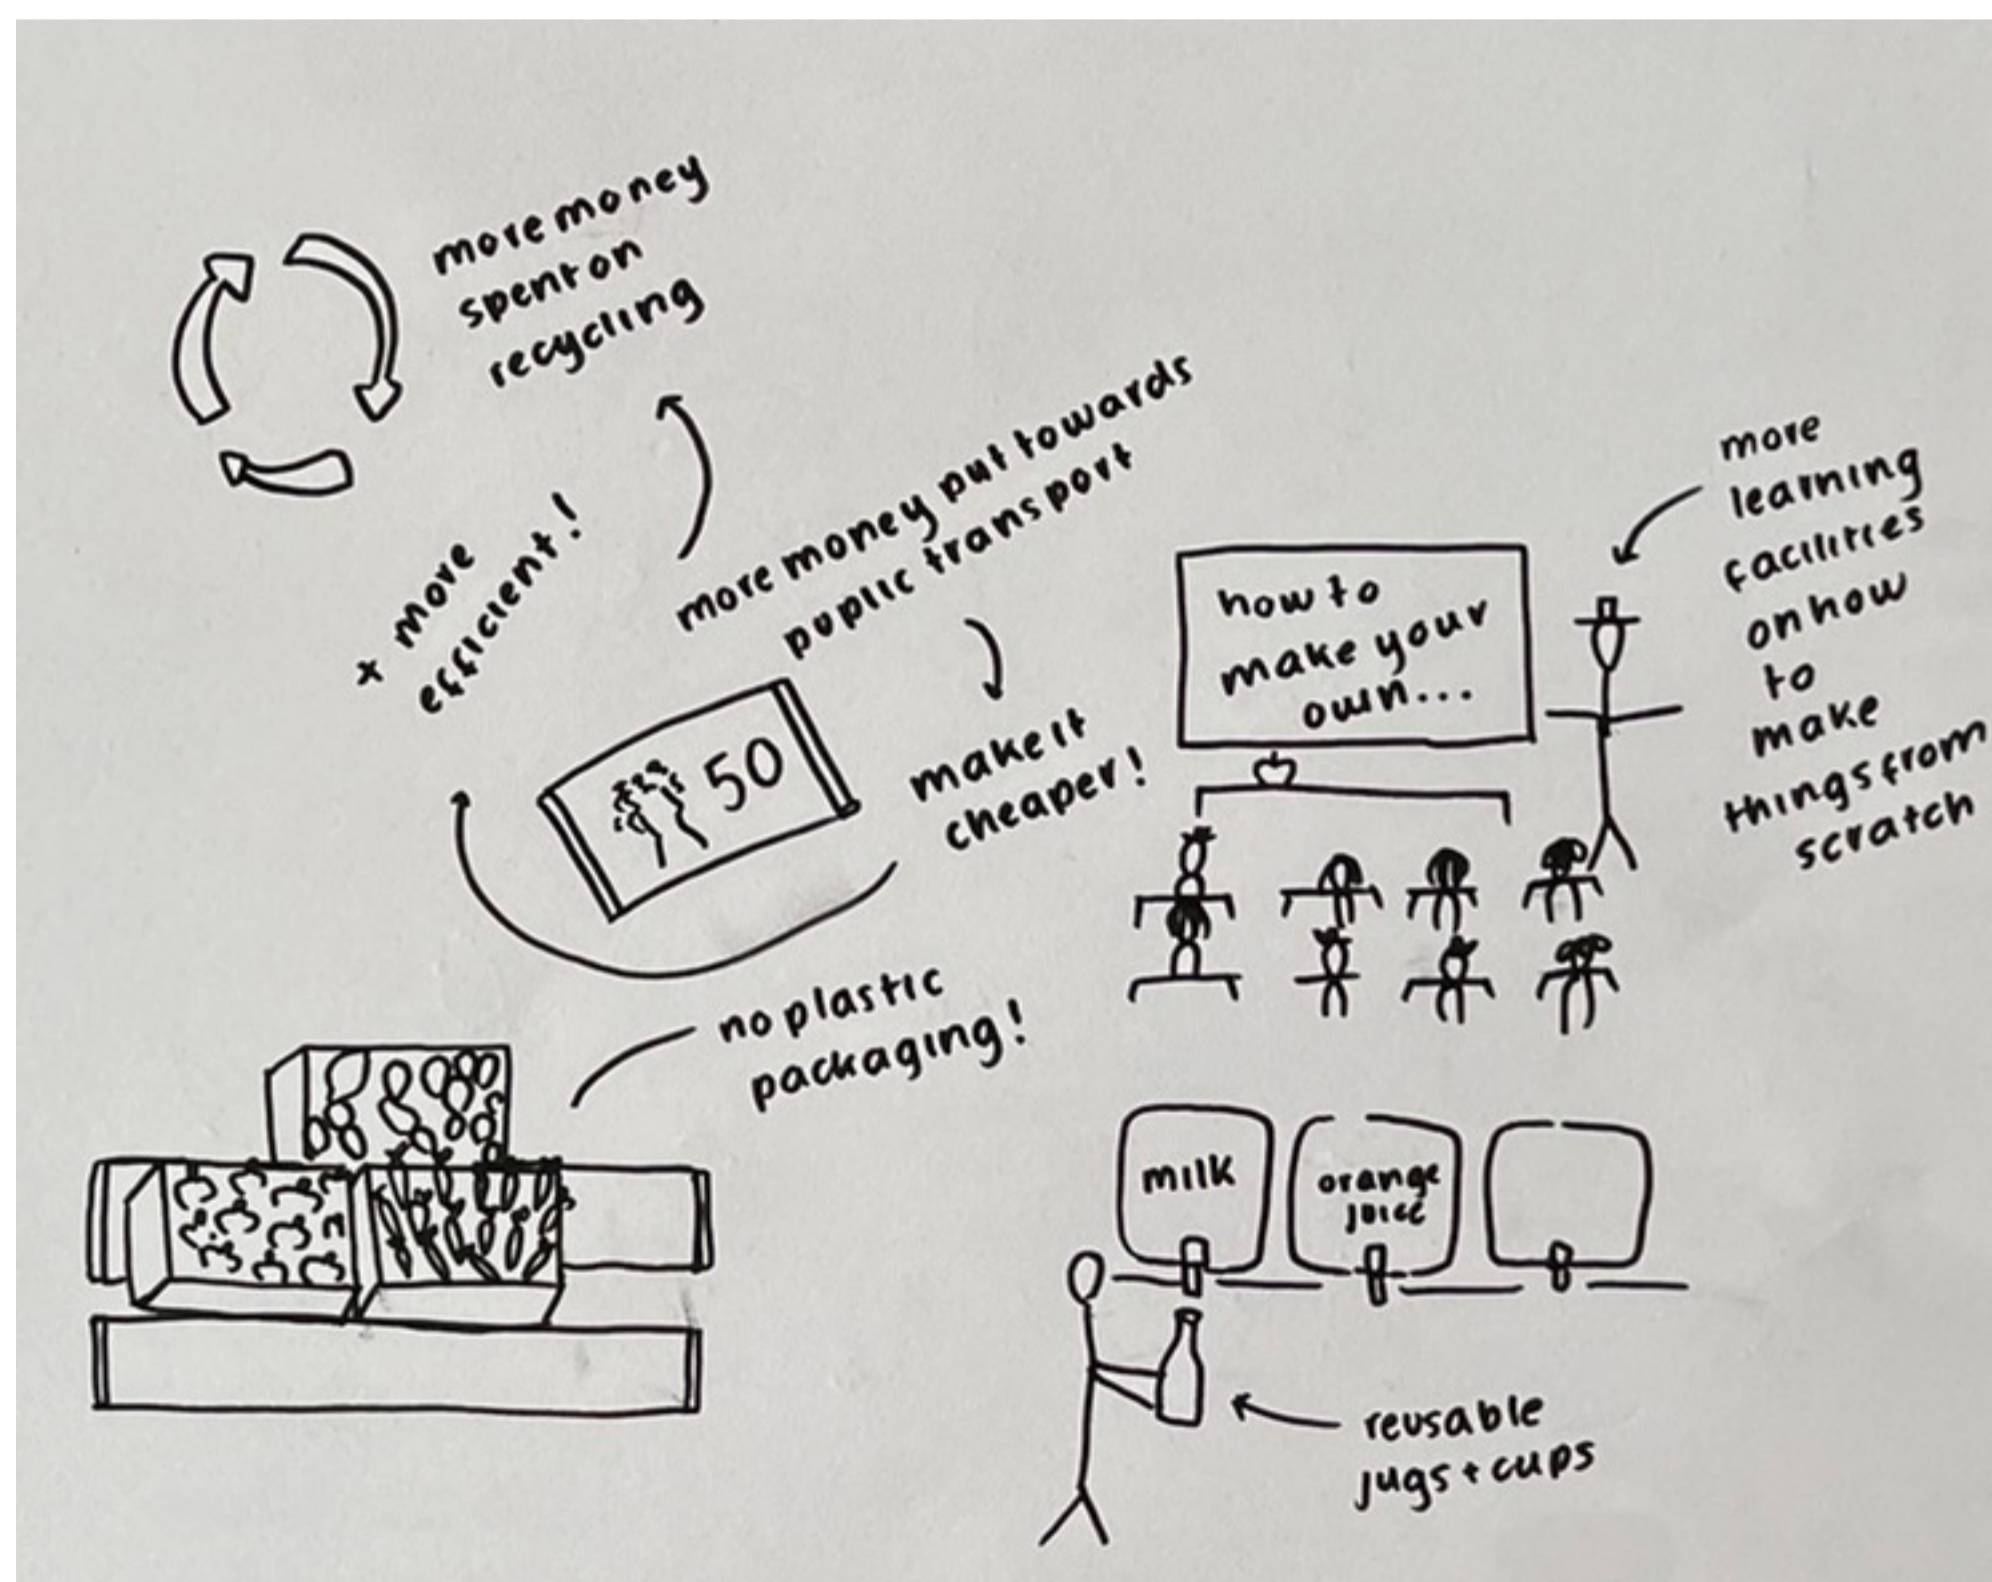 more money
spent on
recycling
+ more
efficient!
more money put towards
puplic transport
make it
cheaper!
50
how to
make your
own...
more
learning
facilities
on how
to
make
things from
scratch
no plastic
packaging!
milk
orange
juice
reusable
jugs + cups